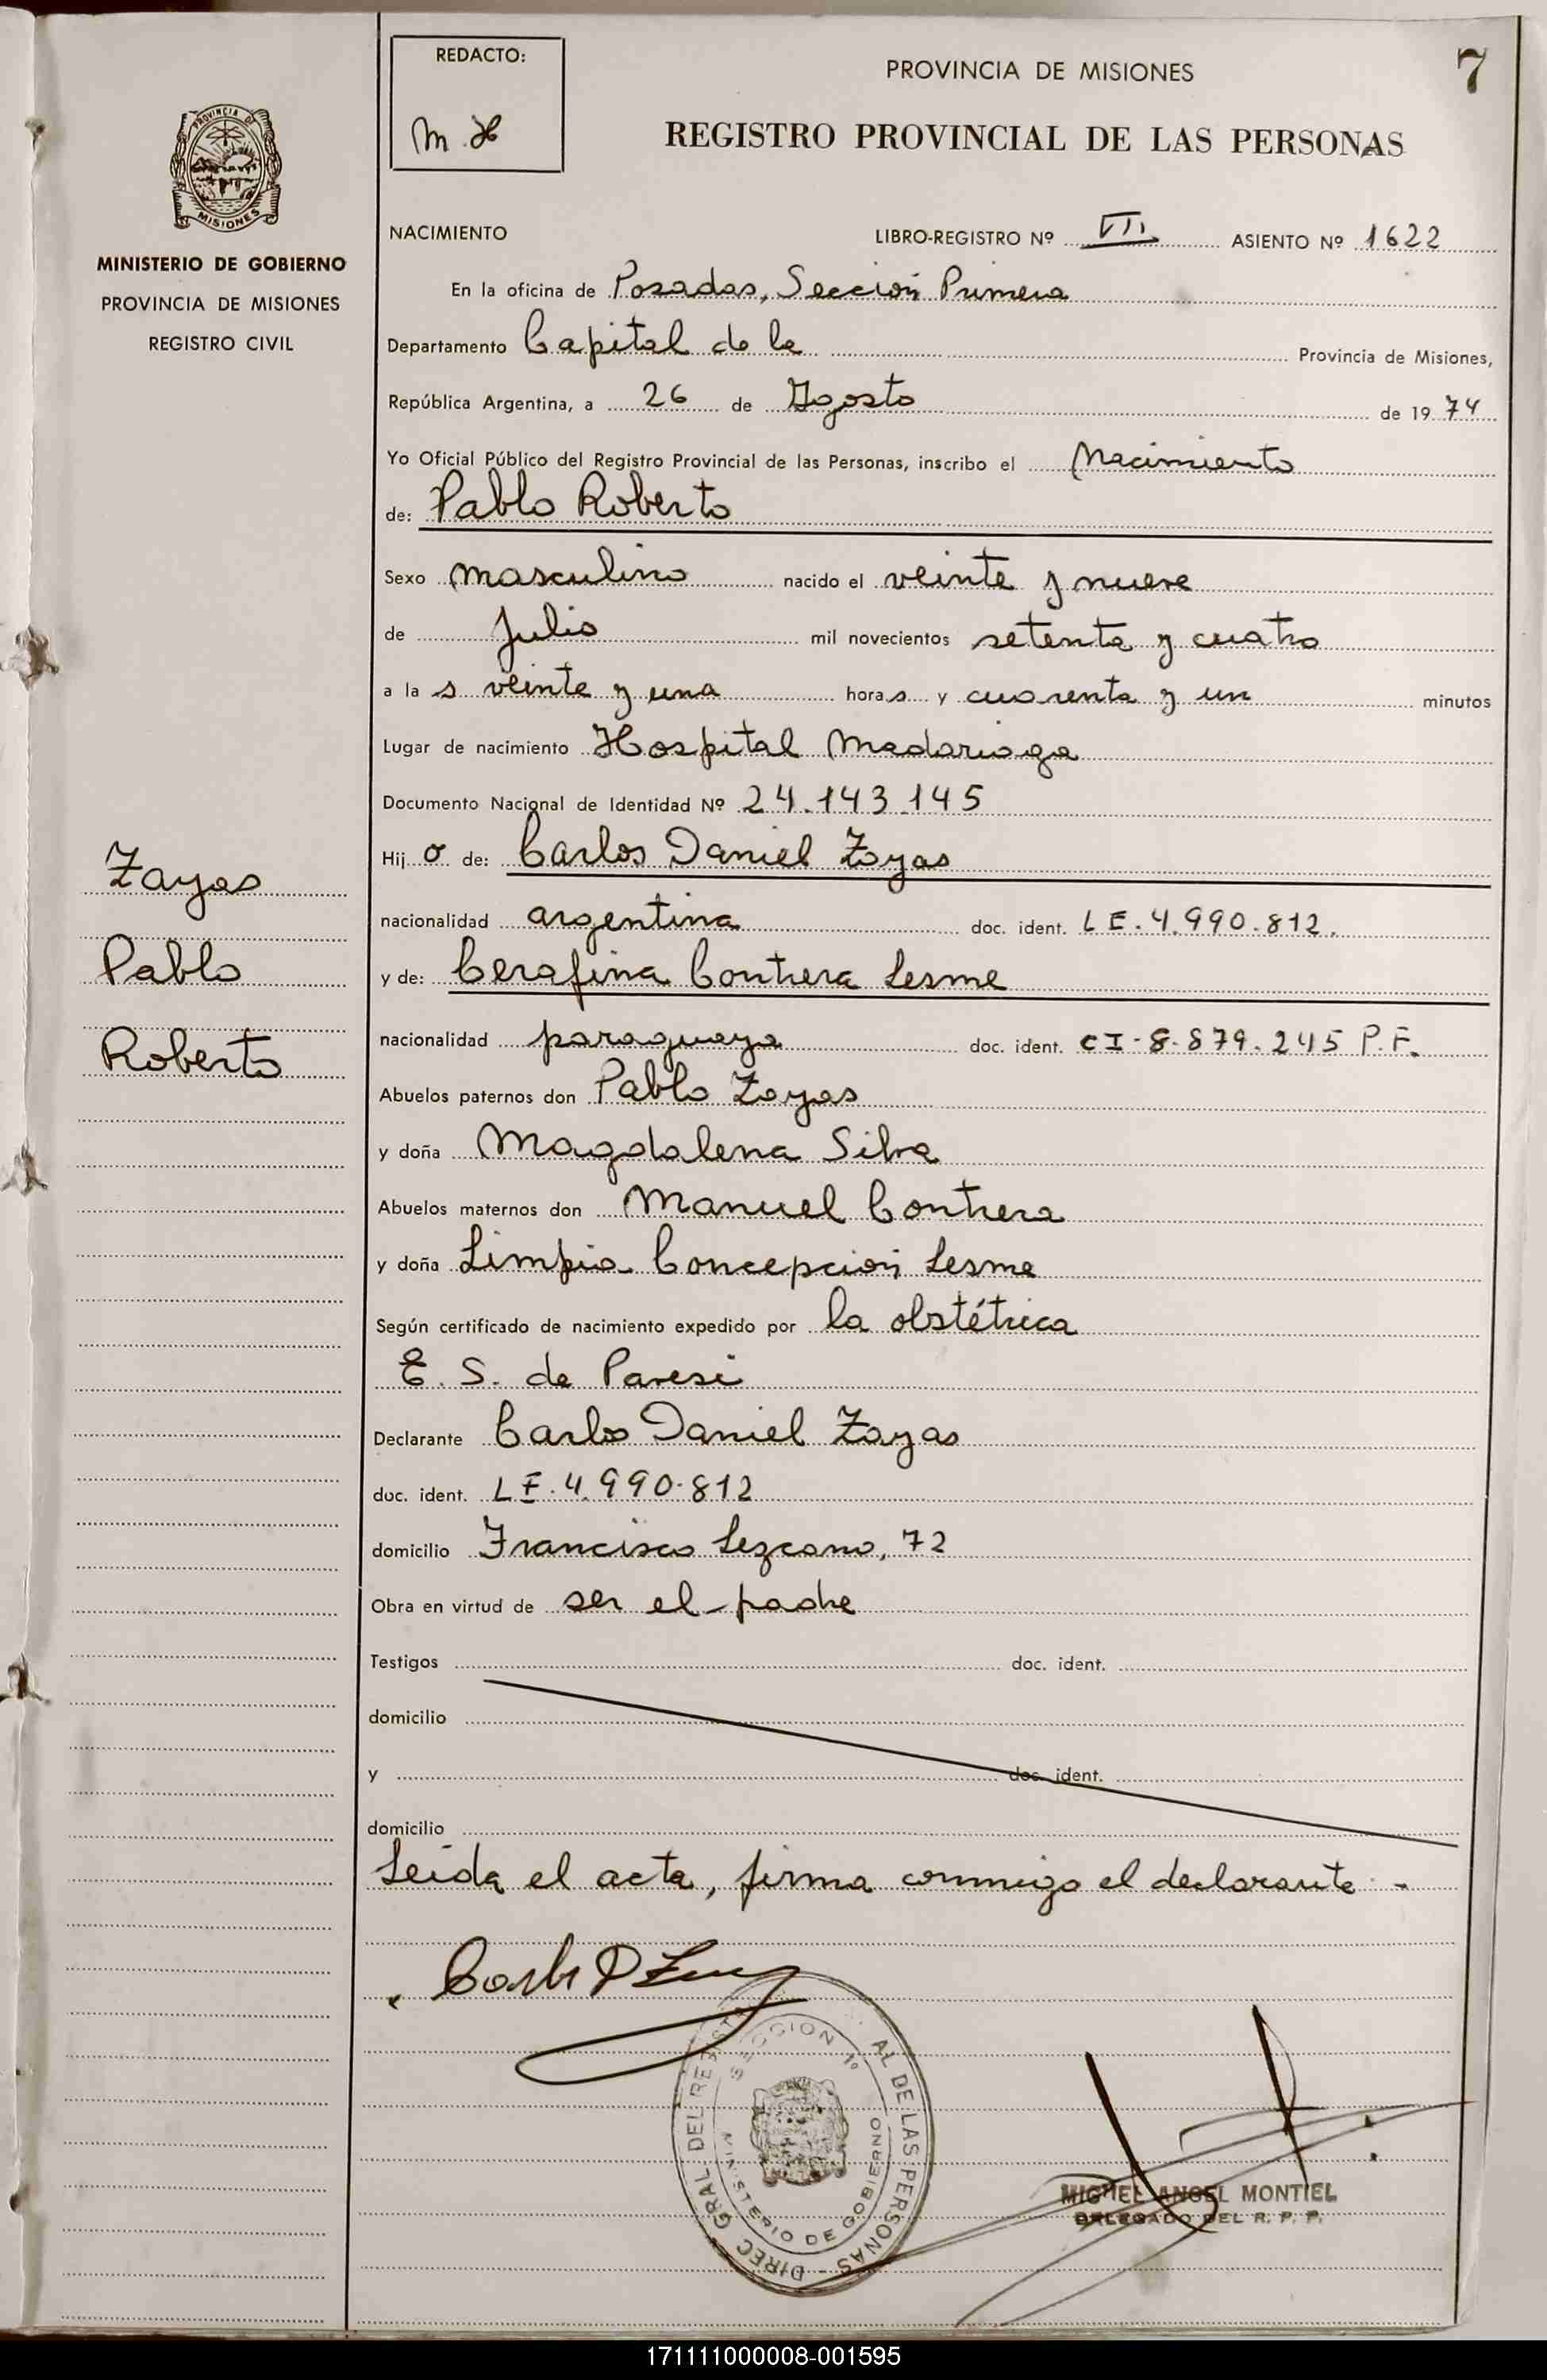 REDACTO:
M. H
PROVINCIA DE MISIONES
7
REGISTRO PROVINCIAL DE LAS PERSONAS
PROVINCIA DE MISIONES
MINISTERIO DE GOBIERNO
PROVINCIA DE MISIONES
REGISTRO CIVIL
NACIMIENTO LIBRO-REGISTRO Nº VII ASIENTO Nº 1622
En la oficina de Posadas, Sección Primera
Departamento Capital de la Provincia de Misiones,
República Argentina, a 26 de Agosto de 1974
Yo Oficial Público del Registro Provincial de las Personas, inscribo el Nacimiento
de: Pablo Roberto
Sexo masculino nacido el veinte y nueve
de Julio mil novecientos setenta y cuatro
a las veinte y una horas y cuarenta y un minutos
Lugar de nacimiento Hospital Madariaga
Documento Nacional de Identidad Nº 24.143.145
Hijo de: Carlos Daniel Zayas
nacionalidad argentina doc. ident. LE. 4.990.812.
y de: Cerafina Contrera Lesme
nacionalidad paraguaya doc. ident. CI-8.879.245 P.F.
Abuelos paternos don Pablo Zayas
y doña Magdalena Silva
Abuelos maternos don Manuel Contrera
y doña Limpia Concepción Lesme
Según certificado de nacimiento expedido por la obstétrica
E. S. de Paresi
Declarante Carlos Daniel Zayas
doc. ident. LE. 4.990.812
domicilio Francisco Lezcano, 72
Obra en virtud de ser el padre
Testigos doc. ident.
domicilio
y doc. ident.
domicilio
Leida el acta, firma conmigo el declarante.-
Zayas
Pablo
Roberto
DIREC. GRAL. DEL REGIST AL DE LAS PERSONAS
SECCION 1º
MINISTERIO DE GOBIERNO
MIGUEL ANGEL MONTIEL
DELEGADO DEL R. P. P.
171111000008-001595